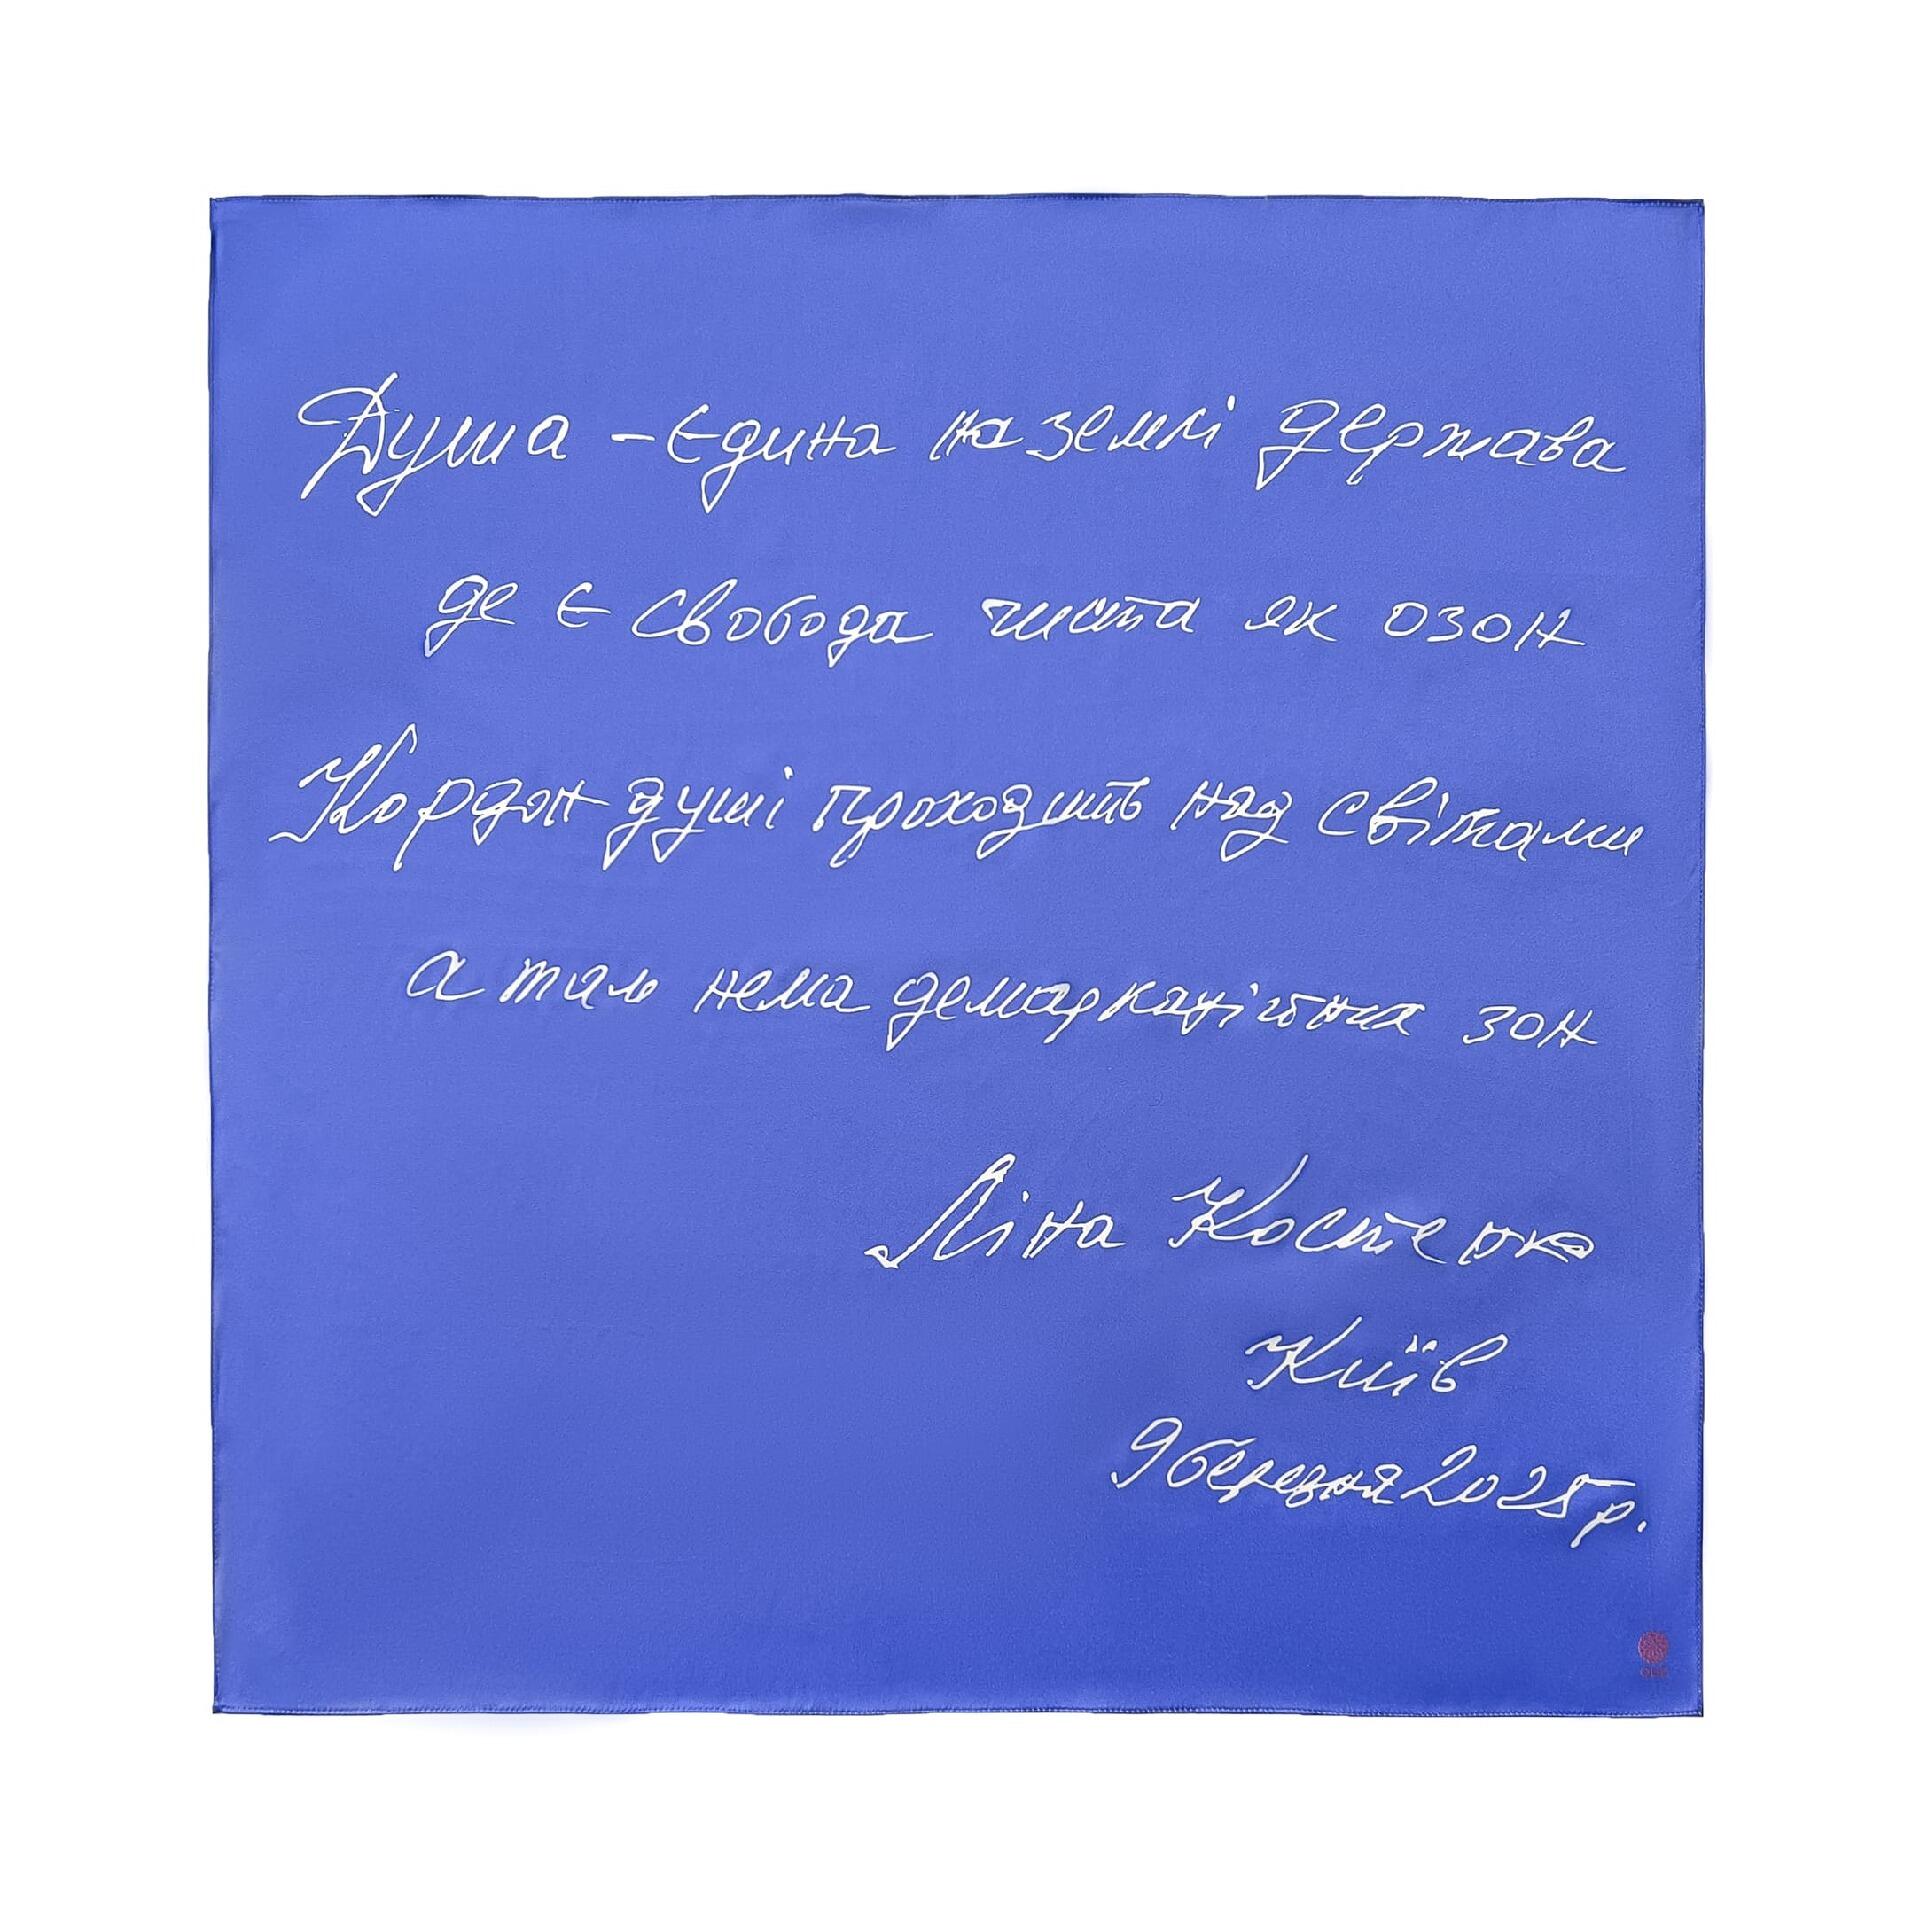 Душа – єдина на землі держава
де є свобода чиста як озон
Кордон душі проходить над світами
а там нема демаркаційних зон
Ліна Костенко
Київ
9 березня 2025 р.